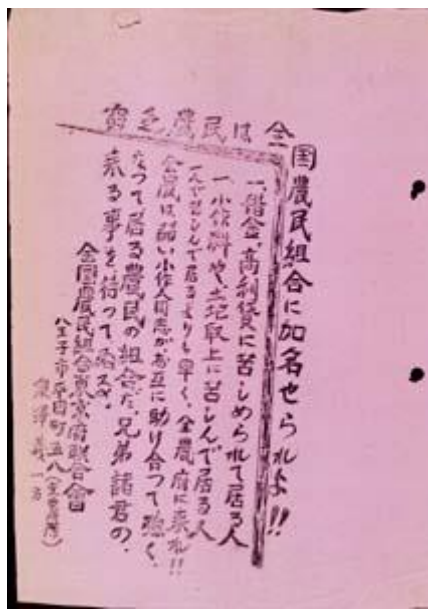 窮乏農民は
全国農民組合に加名せられよ!!
一、借金、高利貸に苦しめられて居る人
一 小作料や土地取上に苦しんで居る人
一人で苦しんで居るよりも早く、全農府に来れ!!
全農は弱い小作人同志がお互に助け合つて強く、
なつて居る農民の組合だ、兄弟諸君の、
来る事を待つて居る。
全国農民組合東京府聯合会
八王子市 町五八